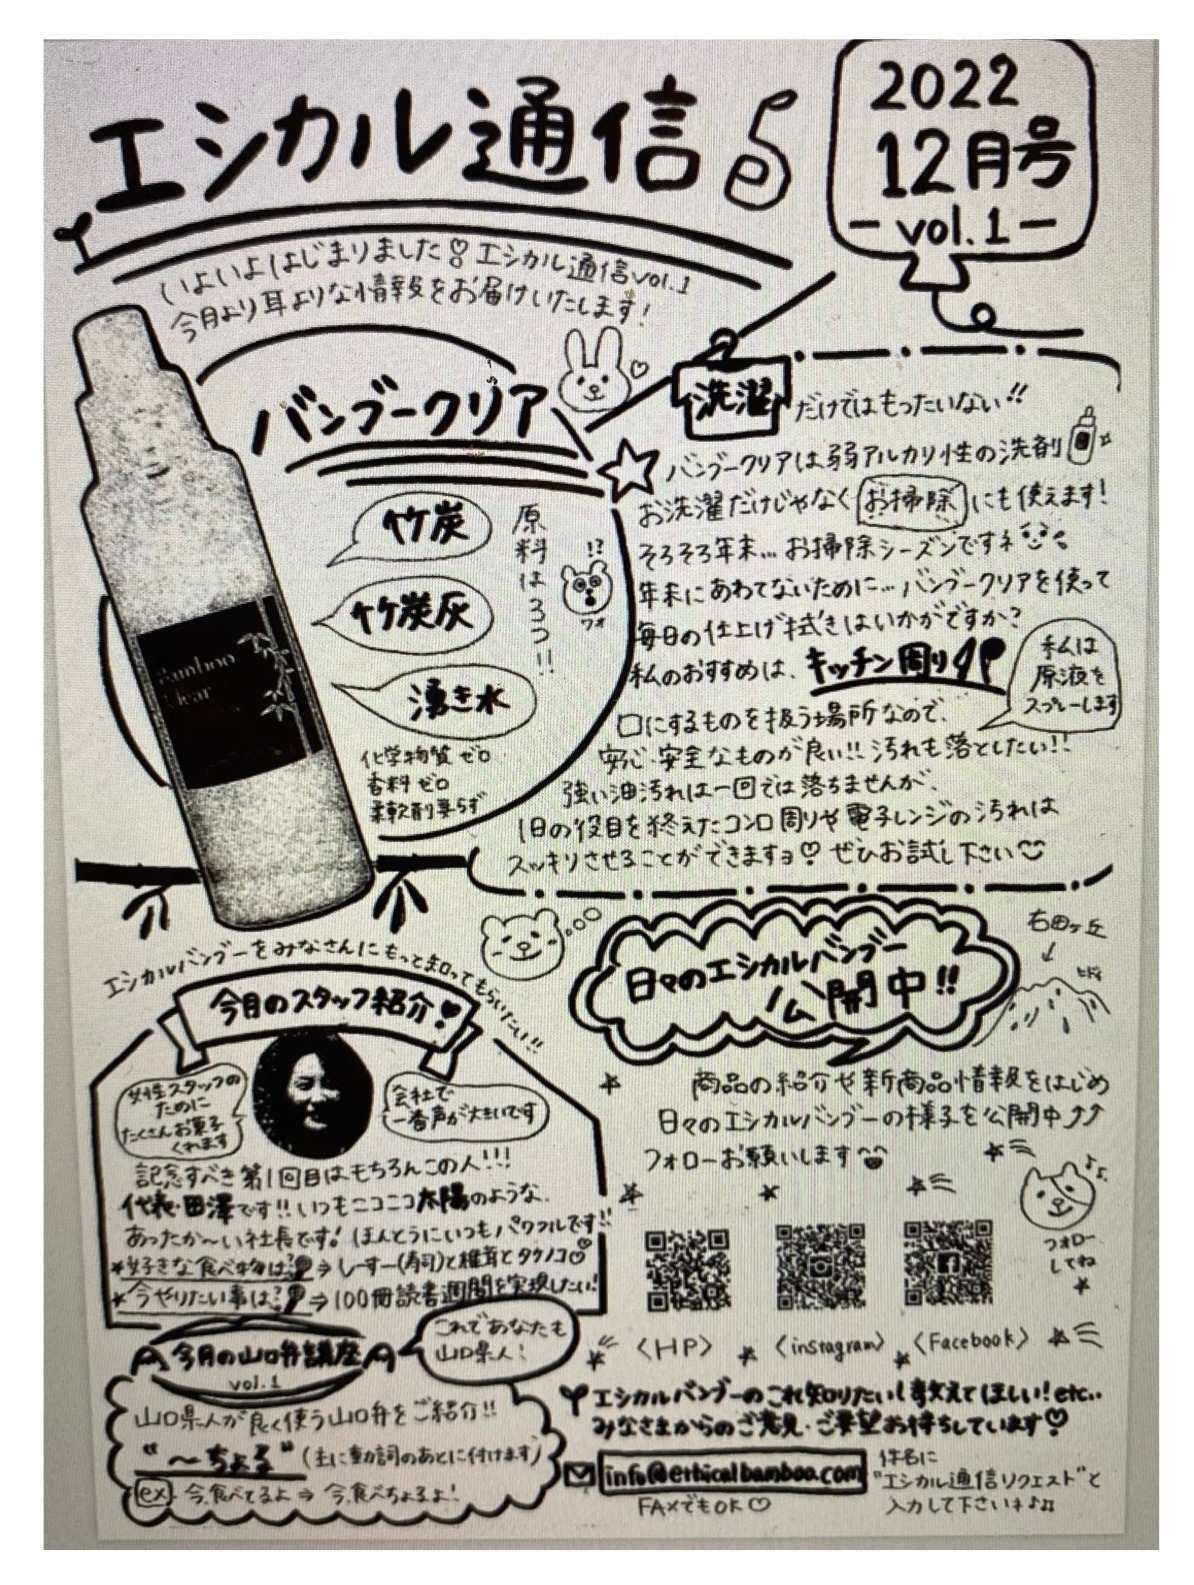 エシカル通信
2022
12月号
-vol.1-
いよいよはじまりました♡エシカル通信vol.1
今月より耳よりな情報をお届けいたします!
バンブークリア
竹炭
竹炭灰
湧き水
原料は3つ!!
!?
フォ
化学物質ゼロ
香料ゼロ
柔軟剤要らず
Bamboo
Clear
洗濯だけではもったいない!!
☆バンブークリアは弱アルカリ性の洗剤
お洗濯だけじゃなくお掃除にも使えます!
そろそろ年末…お掃除シーズンですネ
年末にあわてないために…バンブークリアを使って
毎日の仕上げ拭きはいかがですか?
私のおすすめは、キッチン周り
私は
原液を
スプレーします
口にするものを扱う場所なので、
安心・安全なものが良い!!汚れも落としたい!!
強い油汚れは一回では落ちませんが、
1日の役目を終えたコンロ周りや電子レンジの汚れは
スッキリさせることができますヨ♡ぜひお試し下さい
エシカルバンブーをみなさんにもっと知ってもらいたい!!
今月のスタッフ紹介!
女性スタッフの
ために
たくさんお菓子
くれます
会社で
一番声が大きいです
記念すべき第1回目はもちろんこの人!!!
代表・田澤です!!いつもニコニコ太陽のような、
あったか〜い社長です!ほんとうにいつもパワフルです!!
★好きな食べ物は?⇒しーすー(寿司)と椎茸とタケノコ♡
★今やりたい事は?⇒100冊読書週間を実現したい!
今月の山口弁講座
vol.1
これであなたも
山口県人!
山口県人が良く使う山口弁をご紹介!!
"〜ちょる"(主に動詞のあとに付けます)
ex 今、食べてるよ⇒今、食べちょるよ!
日々のエシカルバンブー
公開中!!
右田ヶ丘
商品の紹介や新商品情報をはじめ
日々のエシカルバンブーの様子を公開中⤴⤴
フォローお願いします
フォロー
してね
〈HP〉
〈instagram〉
〈Facebook〉
エシカルバンブーのこれ知りたい!教えてほしい!etc..
みなさまからのご意見・ご要望お待ちしています♡
info@ethicalbamboo.com
FAXでもOK♡
件名に
"エシカル通信リクエスト"と
入力して下さいネ♪♫